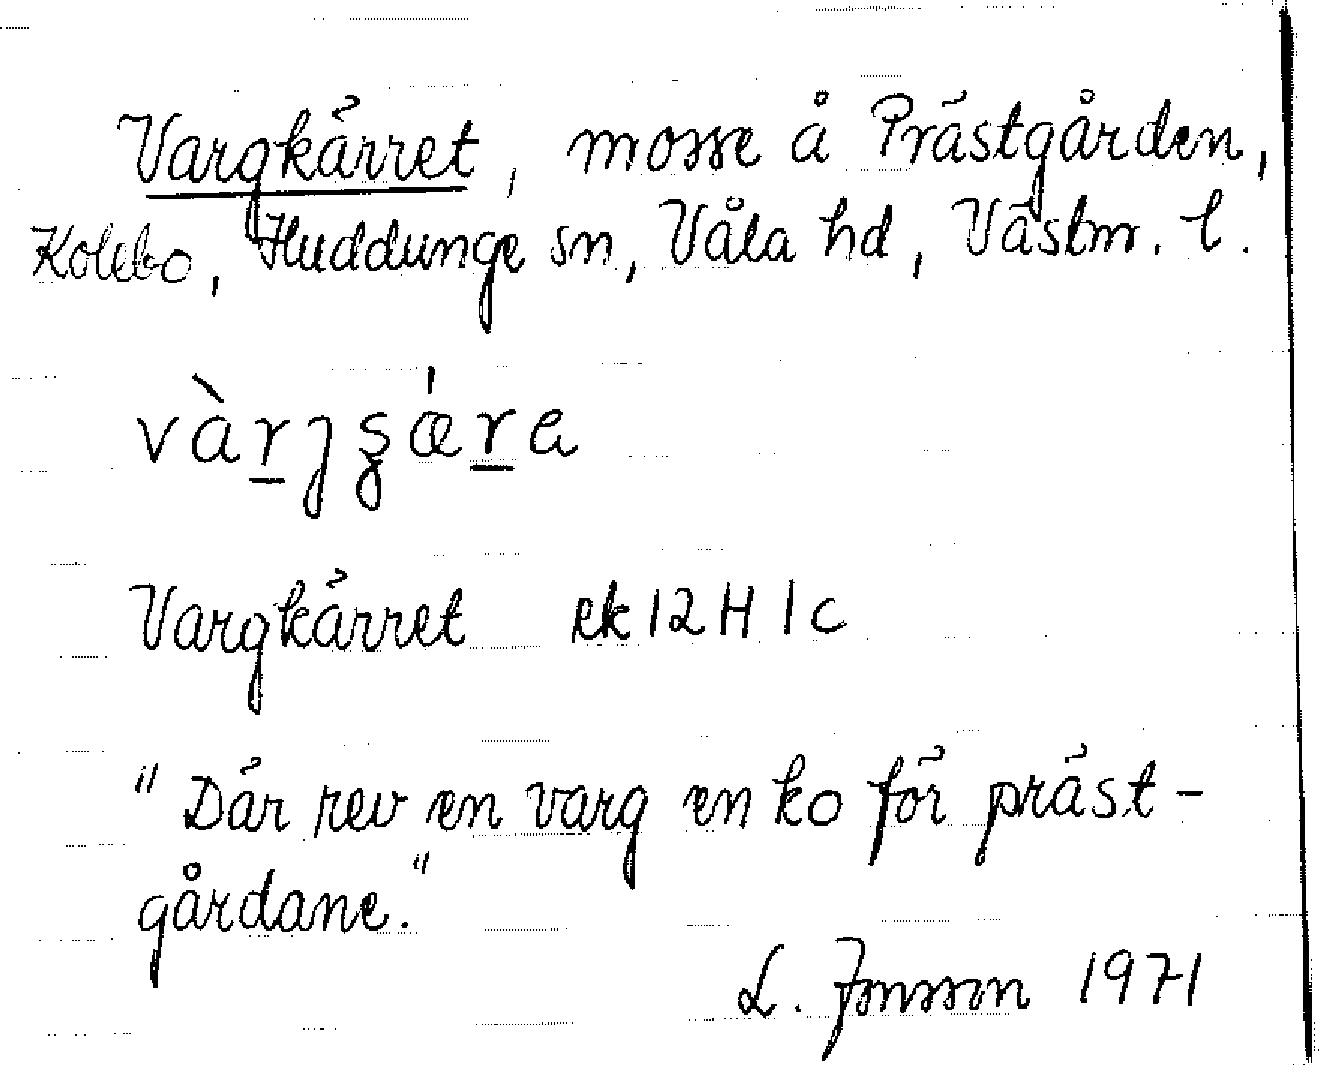 Vargkärret, mosse å Prästgården,
Kolebo, Huddunge sn, Våla hd, Västm. l.
vàr̲ȷʂǽr̲a
Vargkärret ek 12 H 1 c
"Där rev en varg en ko för präst-
gårdane."
L. Jonsson 1971